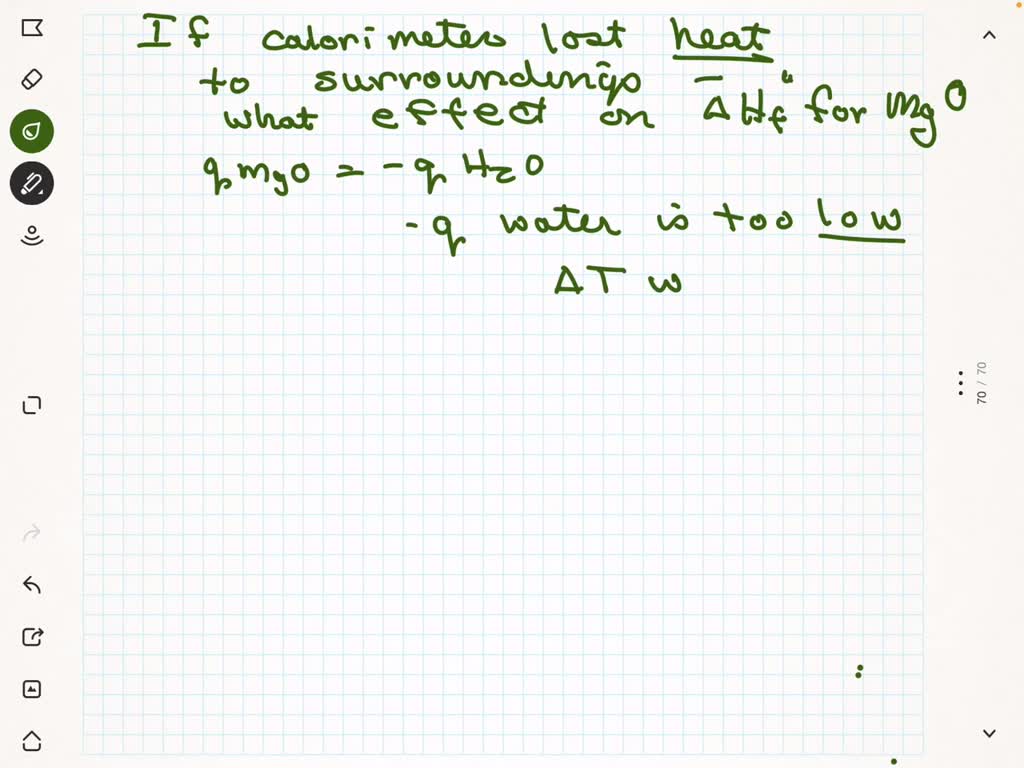 If calorimeter lost heat
to surroundings -
what effect on ΔHf° for MgO
q MgO = -q H2O
-q water is too low
ΔT w
70 / 70